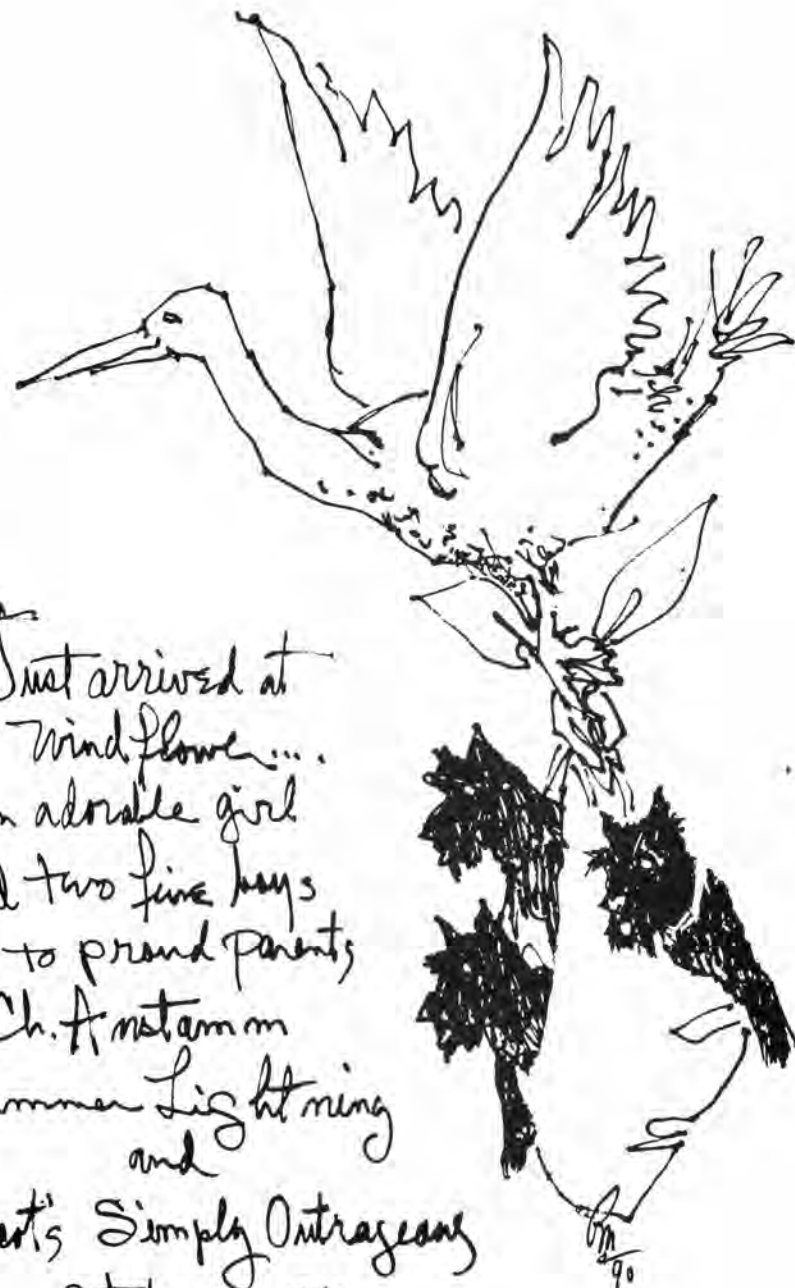 Just arrived at
Windflower....
n adorable girl
d two fine boys
to proud parents
Ch. Anstamm
ummer Lightning
and
ot's Simply Outrageous
90